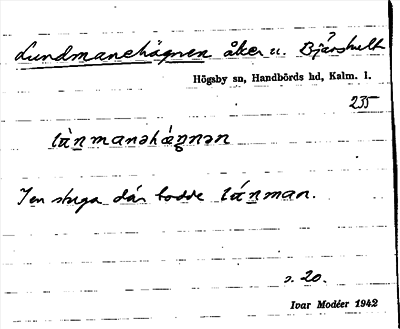 Lundmanehägnen åker u. Bjärshult
Högsby sn, Handbörds hd, Kalm. l.
235
lùn manəhàgnən
I en stuga där bodde lúnman.
s. 20.
Ivar Modéer 1942